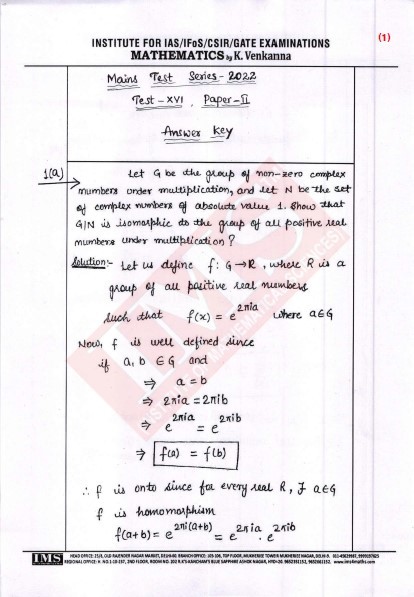 INSTITUTE FOR IAS/IFoS/CSIR/GATE EXAMINATIONS
(1)
MATHEMATICS by K. Venkanna
Mains Test Series - 2022
Test - XVI, Paper - II
Answer Key
1(a) Let G be the group of non-zero complex
numbers under multiplication, and let N be the set
of complex numbers of absolute value 1. Show that
G/N is isomorphic to the group of all positive real
numbers under multiplication?
Solution:- Let us define f: G→R, where R is a
group of all positive real numbers
such that f(x) = e^{2πia} where a∈G
Now, f is well defined since
if a, b ∈ G and
⇒ a = b
⇒ 2πia = 2πib
⇒ e^{2πia} = e^{2πib}
⇒ f(a) = f(b)
∴ f is onto since for every real R, ∃ a∈G
f is homomorphism
f(a+b) = e^{2πi(a+b)} = e^{2πia} . e^{2πib}
IMS
HEAD OFFICE: 25/8, OLD RAJENDER NAGAR MARKET, DELHI-60. BRANCH OFFICE: 105-106, TOP FLOOR, MUKHERJEE TOWER MUKHERJEE NAGAR, DELHI-9.
REGIONAL OFFICE: H. NO. 1-10-237, 2ND FLOOR, ROOM NO. 202 R.K'S-KANCHAM'S BLUE SAPPHIRE ASHOK NAGAR, HYD-20. www.ims4maths.com